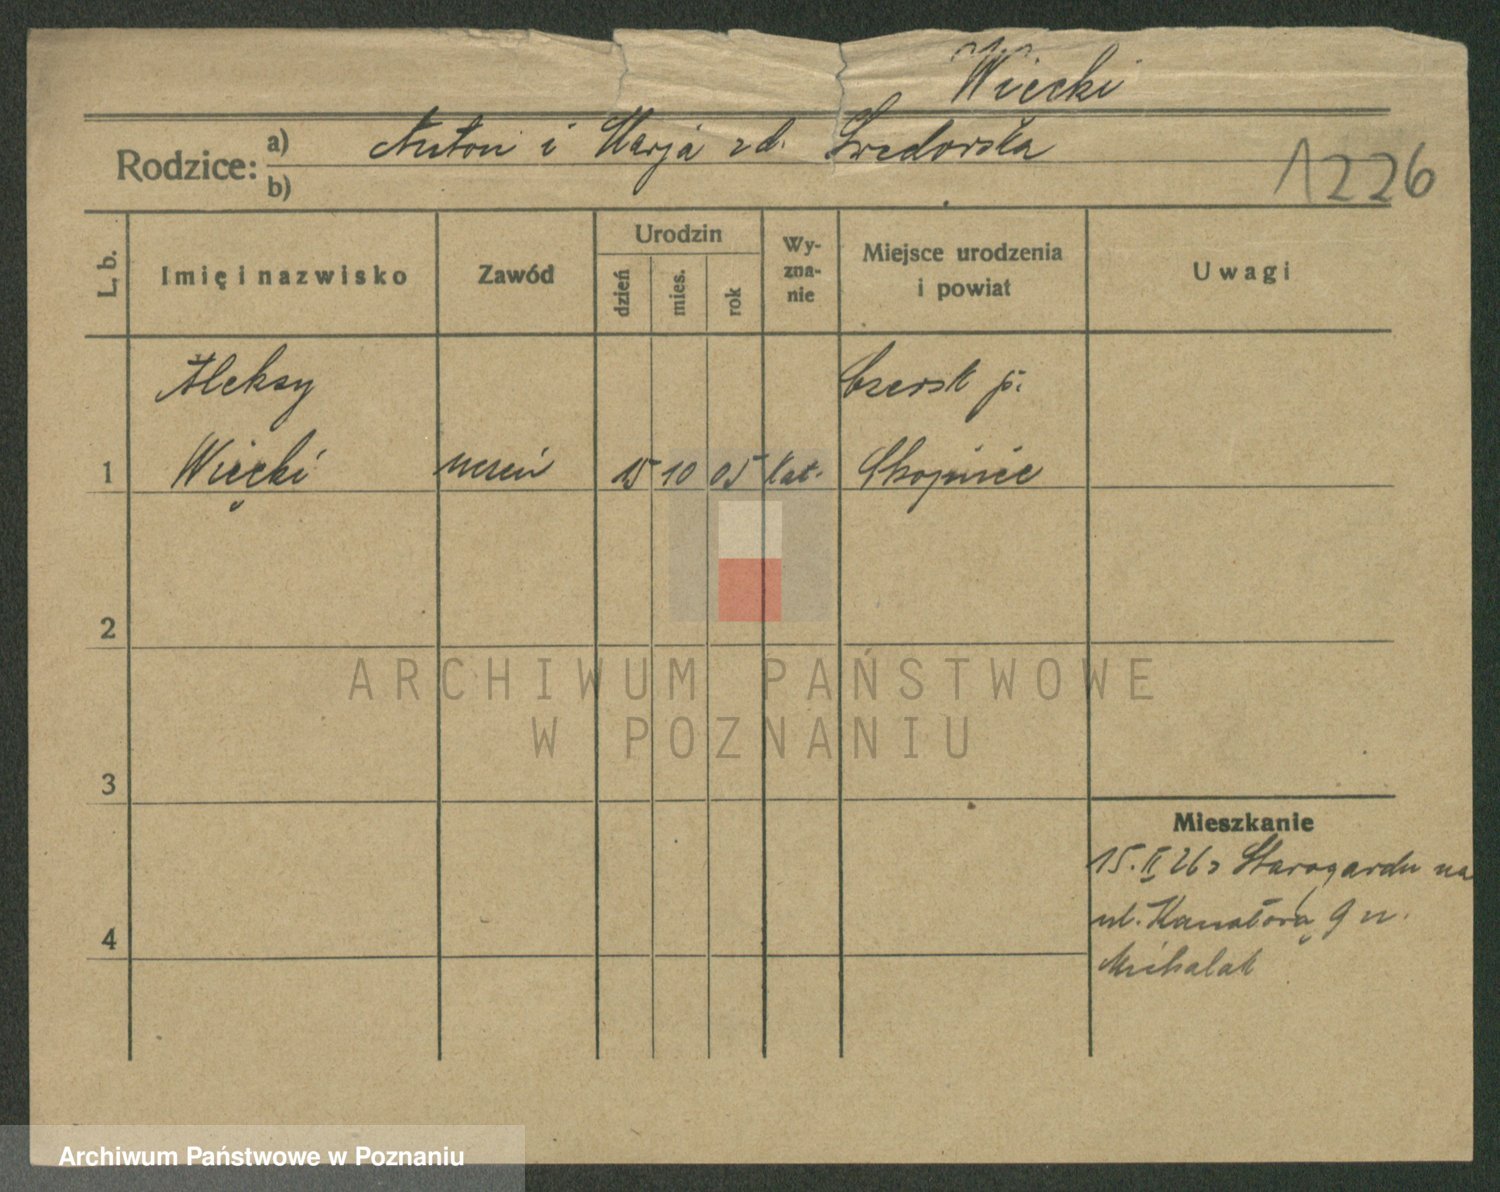 Wiecki
Rodzice: a) Antoni i Marja zd.
b)
1226
L. b.
Imię i nazwisko
Zawód
Urodzin
dzień
mies.
rok
Wy-
zna-
nie
Miejsce urodzenia
i powiat
Uwagi
Aleksy
Czersk p.
1 Więcki uczeń 15 10 05 Kat. Chojnice
2
ARCHIWUM PAŃSTWOWE
W POZNANIU
3
Mieszkanie
15.II 26 z Starogardu na
4
ul. Kanałową 9 u.
Michalak
Archiwum Państwowe w Poznaniu